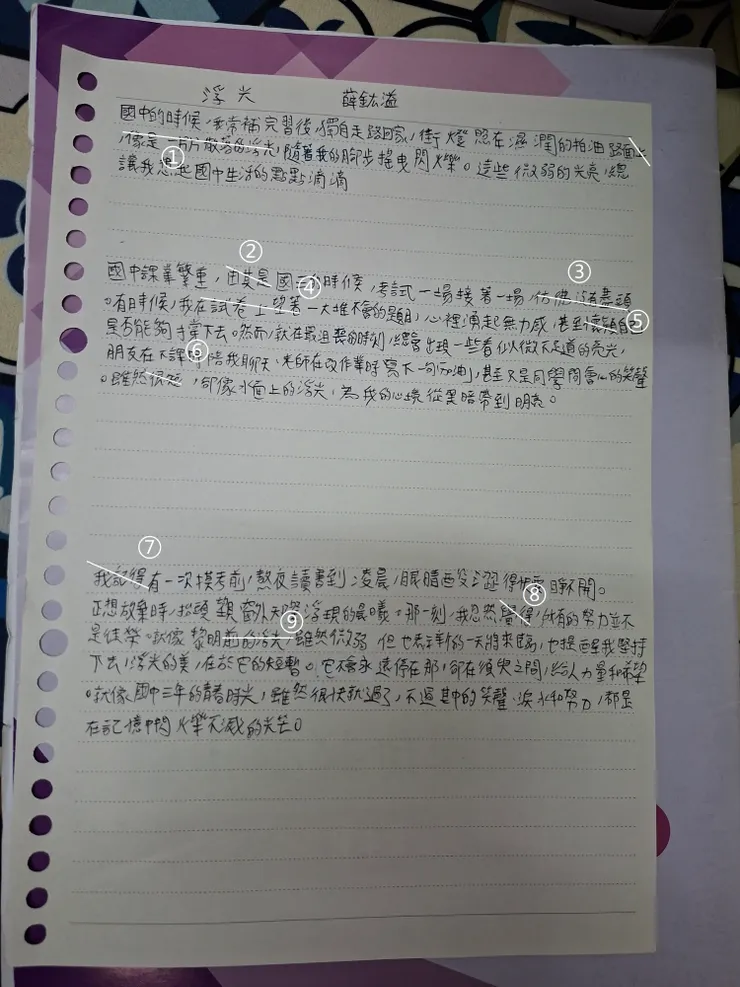 浮光 薛鈜溢
國中的時候,我常補完習後,獨自走路回家,街燈照在濕潤的柏油路面上
,像是一片片散落的浮光,隨著我的腳步搖曳閃爍。這些微弱的光亮,總
①
讓我想起國中生活的點點滴滴
②
國中課業繁重,尤其是國三的時候,考試一場接著一場,彷彿沒有盡頭
③
④
。有時候,我在試卷上望著一大堆不會的題目,心裡湧起無力感,甚至懷疑自己
⑤
是否能夠撐下去。然而,就在最沮喪的時刻,總會出現一些看似微不足道的亮光,
⑥
朋友在下課時陪我聊天、老師在改作業時寫下一句「加油」,甚至只是同學間會心的笑聲
。雖然很短,卻像水面上的浮光,為我的心境從黑暗帶到明亮。
⑦
我記得有一次模考前,熬夜讀書到凌晨,眼睛 得 睜不開。
⑧
正想放棄時,抬頭 窗外天 浮現的晨曦。那一刻,我忽然覺得,所有的努力並不
⑨
是徒勞。就像黎明前的浮光,雖然微弱 但也表示新的一天將來臨,也提醒我堅持
下去,浮光的美,在於它的短暫。它不會永遠停在那,卻在 之間,給人力量和希望
。就像國中三年的青春時光,雖然很快就過了,不過其中的笑聲、淚水和努力,都是
在記憶中閃爍不滅的光芒。